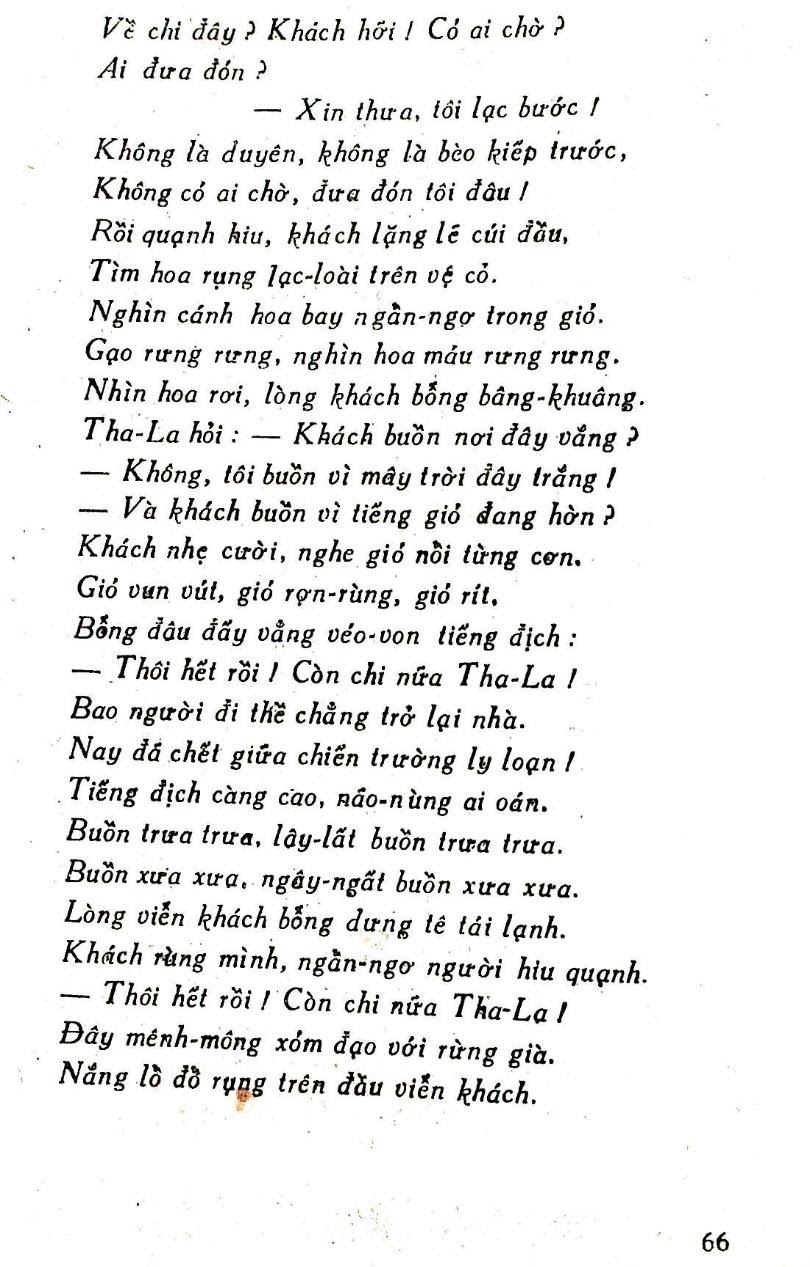 Về chi đây ? Khách hỡi ! Có ai chờ ?
Ai đưa đón ?
— Xin thưa, tôi lạc bước !
Không là duyên, không là bèo kiếp trước,
Không có ai chờ, đưa đón tôi đâu !
Rồi quạnh hiu, khách lặng lẽ cúi đầu,
Tìm hoa rụng lạc-loài trên vệ cỏ.
Nghìn cánh hoa bay ngần-ngơ trong gió.
Gạo rưng rưng, nghìn hoa máu rưng rưng.
Nhìn hoa rơi, lòng khách bỗng bâng-khuâng.
Tha-La hỏi : — Khách buồn nơi đây vắng ?
— Không, tôi buồn vì mây trời đây trắng !
— Và khách buồn vì tiếng gió đang hờn ?
Khách nhẹ cười, nghe gió nồi từng cơn.
Gió vun vút, gió rợn-rùng, gió rít.
Bỗng đâu đấy vẳng véo-von tiếng địch :
— Thôi hết rồi ! Còn chi nữa Tha-La !
Bao người đi thề chẳng trở lại nhà.
Nay đã chết giữa chiến trường ly loạn !
Tiếng địch càng cao, não-nùng ai oán.
Buồn trưa trưa, lây-lất buồn trưa trưa.
Buồn xưa xưa, ngây-ngất buồn xưa xưa.
Lòng viễn khách bỗng dưng tê tái lạnh.
Khách rùng mình, ngần-ngơ người hiu quạnh.
— Thôi hết rồi ! Còn chi nữa Tha-La !
Đây mênh-mông xóm đạo với rừng già.
Nắng lồ đồ rụng trên đầu viễn khách.
66